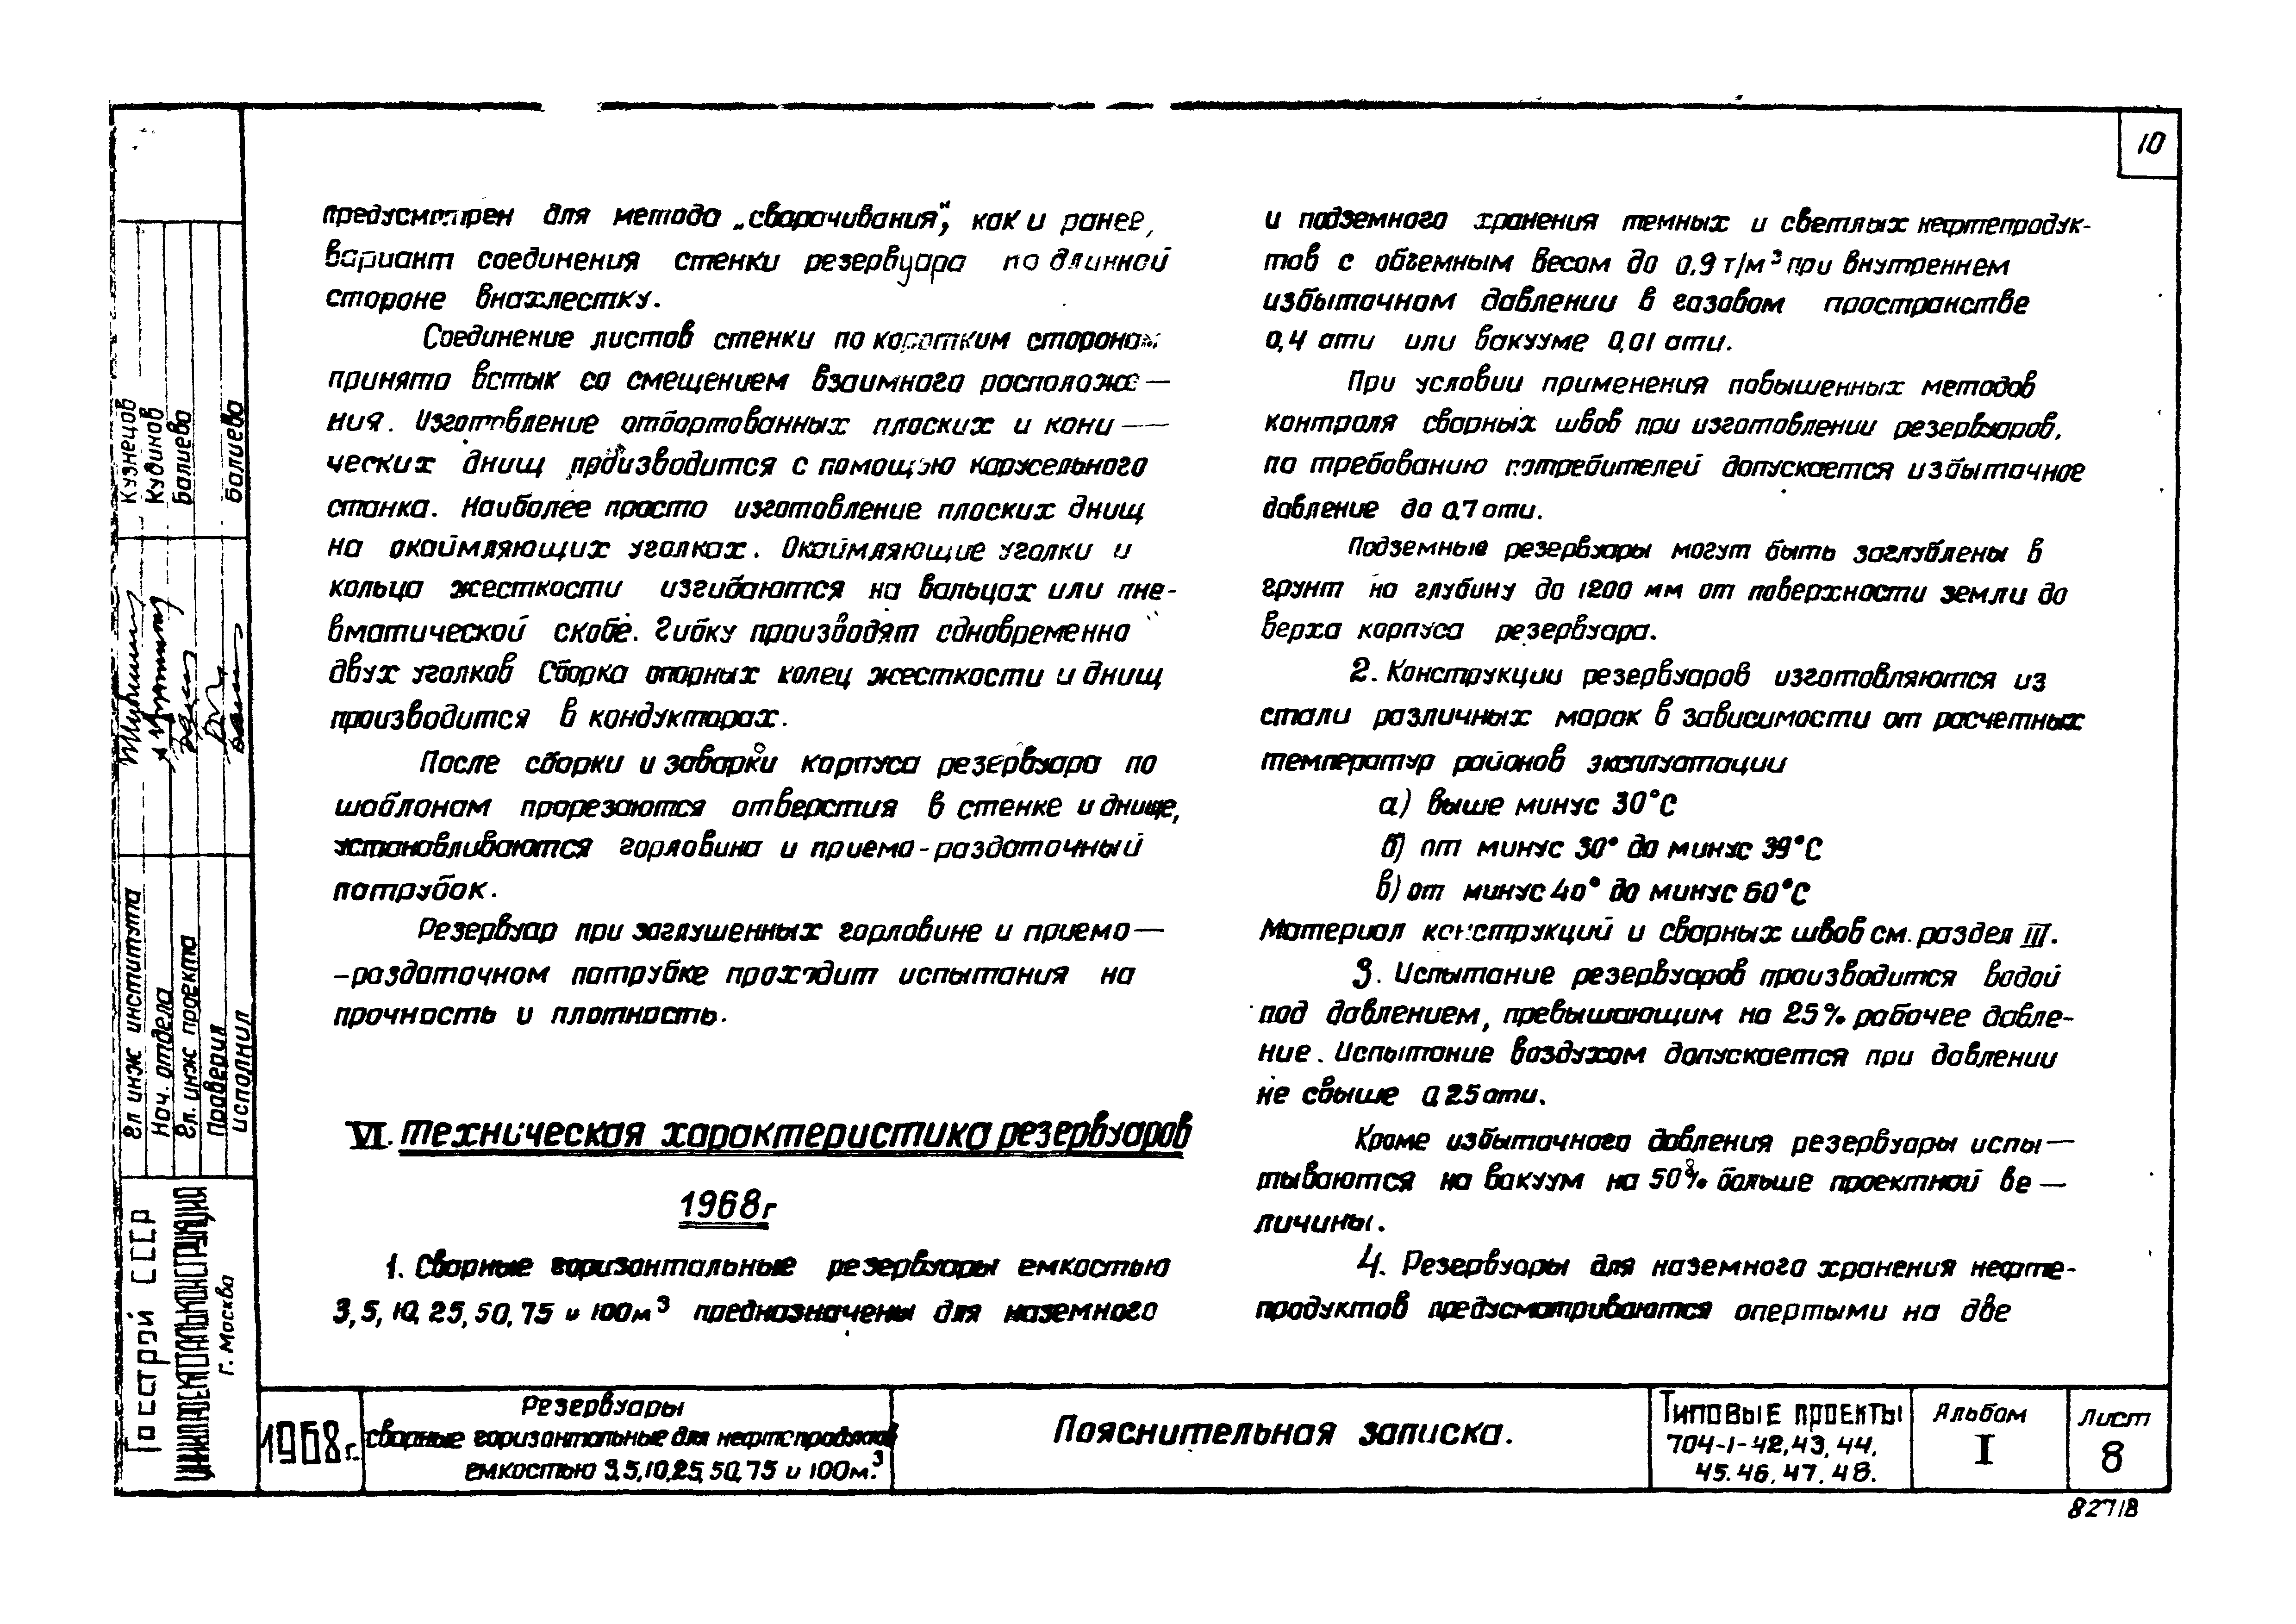 10
предусмотрен для метода „сворачивания", как и ранее,
вариант соединения стенки резервуара по длинной
стороне внахлестку.
Соединение листов стенки по коротким сторонам
принято встык со смещением взаимного расположе—
ния. Изготовление отбортованных плоских и кони—
ческих днищ производится с помощью карусельного
станка. Наиболее просто изготовление плоских днищ
на окаймляющих уголках. Окаймляющие уголки и
кольца жесткости изгибаются на вальцах или пне-
вматической скобе. Гибку производят одновременно
двух уголков Сборка опорных колец жесткости и днищ
производится в кондукторах.
После сборки и заварки корпуса резервуара по
шаблонам прорезаются отверстия в стенке и днище,
устанавливаются горловина и приемо-раздаточный
патрубок.
Резервуар при заглушенных горловине и приемо—
-раздаточном патрубке проходит испытания на
прочность и плотность.
VI. Техническая характеристика резервуаров
1968г
1. Сварные горизонтальные резервуары емкостью
3, 5, 10, 25, 50, 75 и 100м³ предназначены для наземного
и подземного хранения темных и светлых нефтепродук-
тов с объемным весом до 0.9 т/м³ при внутреннем
избыточном давлении в газовом пространстве
0,4 ати или вакууме 0,01 ати.
При условии применения повышенных методов
контроля сварных швов при изготовлении резервуаров,
по требованию потребителей допускается избыточное
давление до 0.7 ати.
Подземные резервуары могут быть заглублены в
грунт на глубину до 1200 мм от поверхности земли до
верха корпуса резервуара.
2. Конструкции резервуаров изготовляются из
стали различных марок в зависимости от расчетных
температур районов эксплуатации
а) выше минус 30°С
б) от минус 30° до минус 39°С
в) от минус 40° до минус 60°С
Материал конструкций и сварных швов см. раздел III.
3. Испытание резервуаров производится водой
под давлением, превышающим на 25% рабочее давле-
ние. Испытание воздухом допускается при давлении
не свыше 0.25 ати.
Кроме избыточного давления резервуары испы—
тываются на вакуум на 50% больше проектной ве—
личины.
4. Резервуары для наземного хранения нефте-
продуктов предусматриваются опертыми на две
Гл инж института Кузнецов
Нач. отдела Кудинов
Гл. инж проекта Балиева
Проверил
исполнил Балиева
Госстрой СССР
ЦНИИПРОЕКТСТАЛЬКОНСТРУКЦИЯ
г. Москва
1968г.
Резервуары
сварные горизонтальные для нефтепродуктов
емкостью 3,5,10,25,50,75 и 100м.³
Пояснительная записка.
Типовые проекты
704-1-42,43,44,
45.46.47.48.
Альбом
I
Лист
8
82718